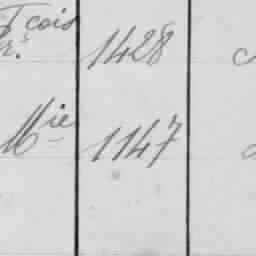 Fçois
r. 1428
Mie 1147